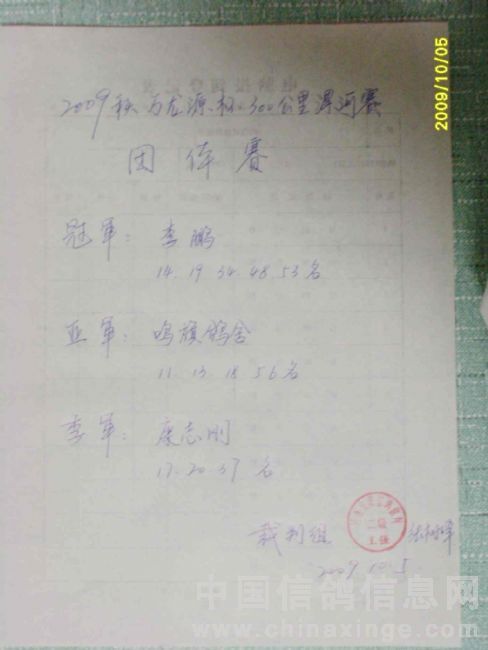 2009/10/05
2009秋万龙源杯.300公里漯河赛
团体赛
冠军：李鹏
14.19 34.48.53名
亚军：鸣旗鸽舍
11.13.18 56名
季军：康志刚
17.20.37名
裁判组
二级
王强
2009.10.5.
中国信鸽信息网
www.chinaxinge.com